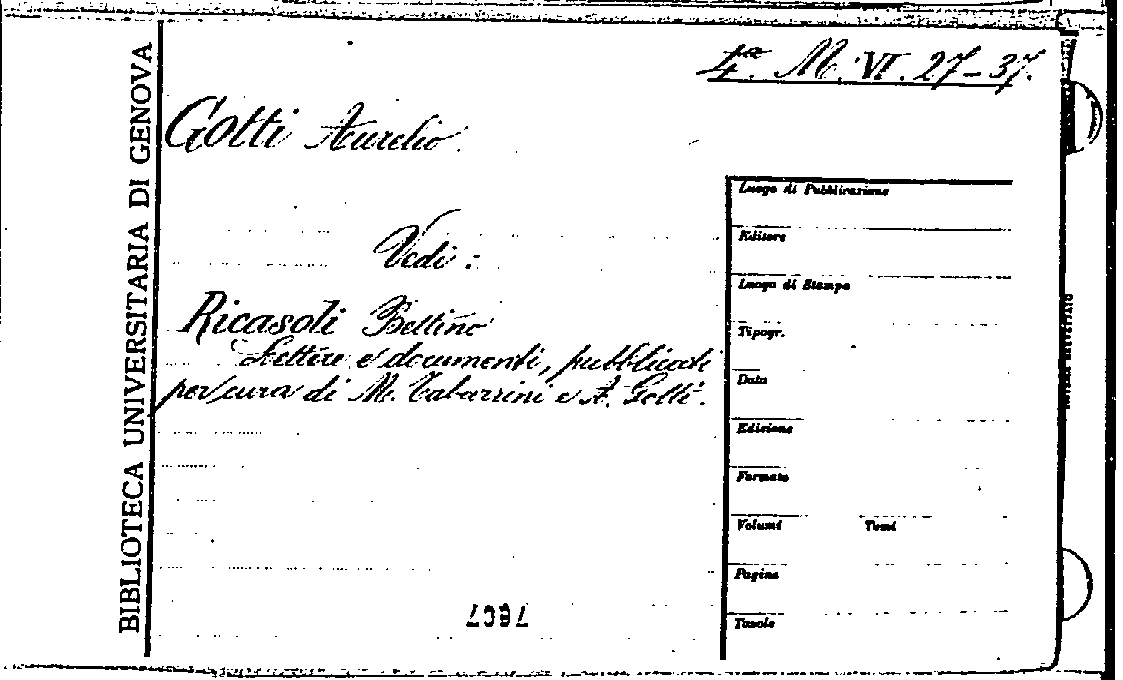 4.ta M. VI. 27-37.
Gotti Aurelio.
Vedi:
Ricasoli Bettino
Lettere e documenti, pubblicati
per cura di M. Tabarrini e A. Gotti.
BIBLIOTECA UNIVERSITARIA DI GENOVA
Luogo di Pubblicazione
Editore
Luogo di Stampa
Tipogr.
Data
Edizione
Formato
Volumi Tomi
Pagine
Tavole